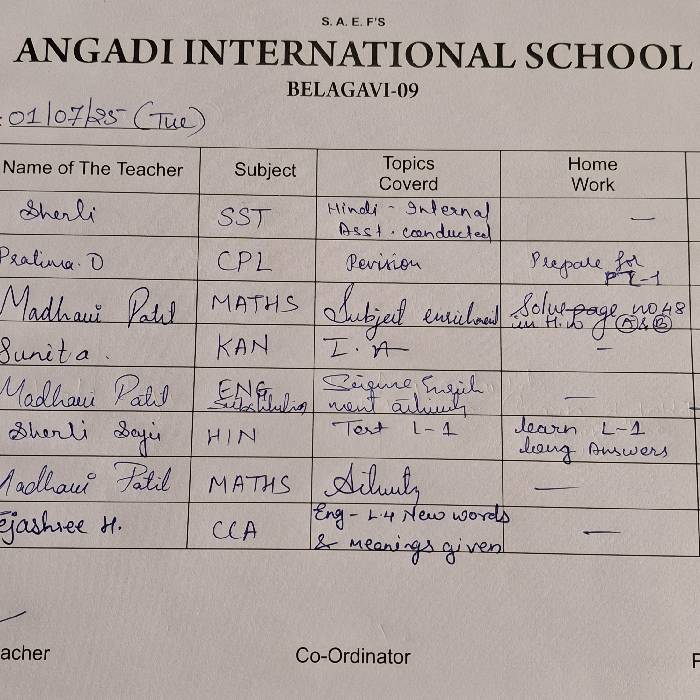 S. A. E. F'S
ANGADI INTERNATIONAL SCHOOL
BELAGAVI-09
: 01/07/25 (Tue)
Name of The Teacher Subject Topics Coverd Home Work
Sherli SST Hindi - Internal Asst. conducted —
Pratima. D CPL Revision Prepare for PT-1
Madhavi Patil MATHS Subject enrichment Solve page no 48 in H.W page A & B
Sunita. KAN I. A —
Madhavi Patil ENG Substitution ment —
Sherli HIN Test L-1 learn L-1 long Answers
Madhavi Patil MATHS —
ejashree H. CCA Eng - L.4 New words & meanings given —
acher Co-Ordinator